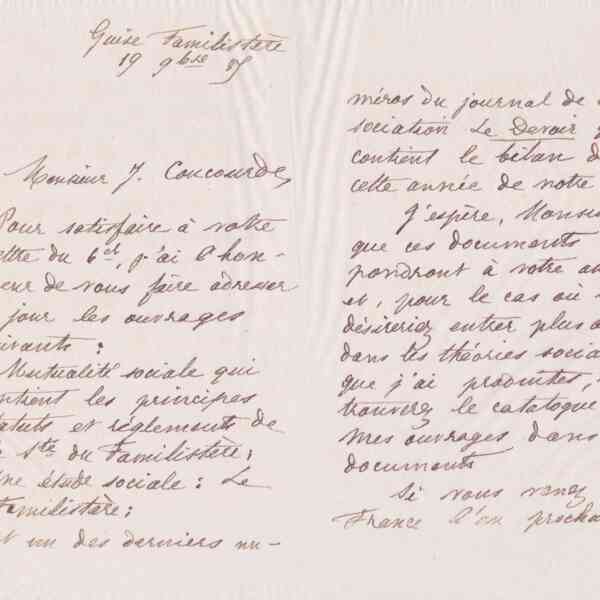 Guise Familistère
19 9bre 85
Monsieur J. Concourde,
Pour satisfaire à votre
ettre du 6 ct, j'ai l'hon-
eur de vous faire adresser
jour les ouvrages
ivants :
Mutualité sociale qui
ntient les principes
tatuts et réglements de
Sté du Familistère ;
ne étude sociale : Le
Familistère ;
t un des derniers nu-
méros du journal de
sociation Le Devoir
contient le bilan d
cette année de notre
J'espère, Monsi
que ces documents
pondront à votre at
et, pour le cas où
désireriez entrer plus a
dans les théories socia
que j'ai produites,
trouverez le catalogue
mes ouvrages dans
documents
Si vous venez
France l'an procha